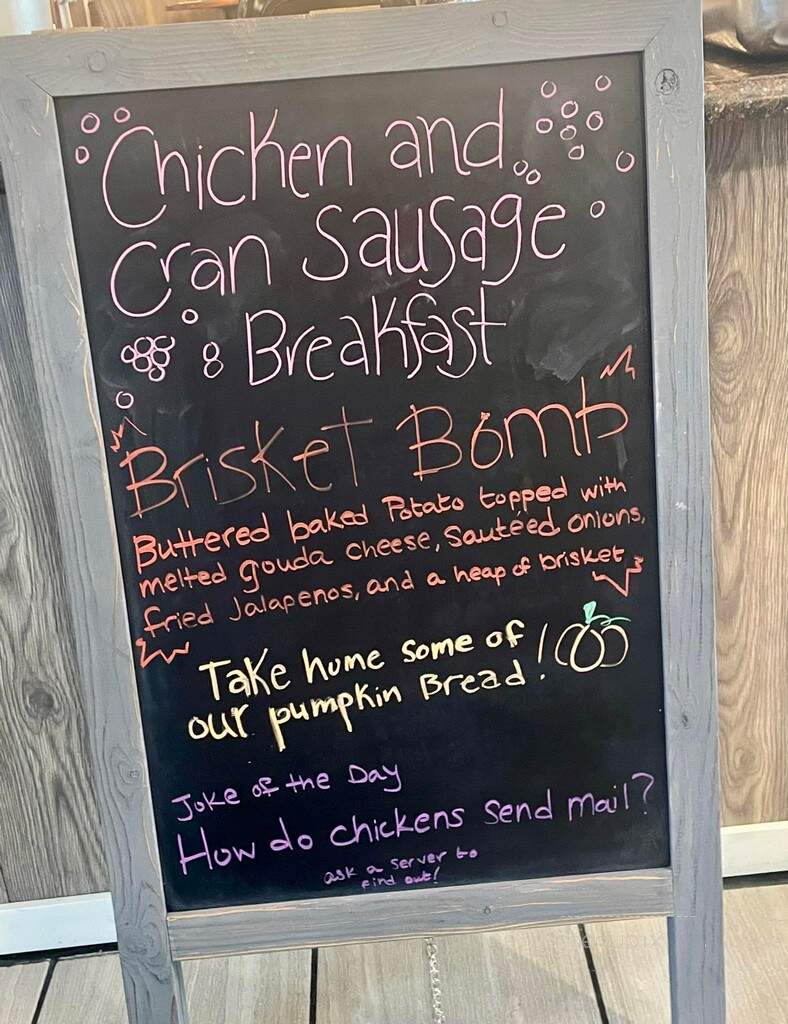 Chicken and
Cran Sausage
Breakfast
Brisket Bomb
Buttered baked Potato topped with
melted gouda cheese, Sauteed onions,
fried Jalapenos, and a heap of brisket
Take home some of
our pumpkin Bread!
Joke of the Day
How do chickens send mail?
ask a server to
find out!